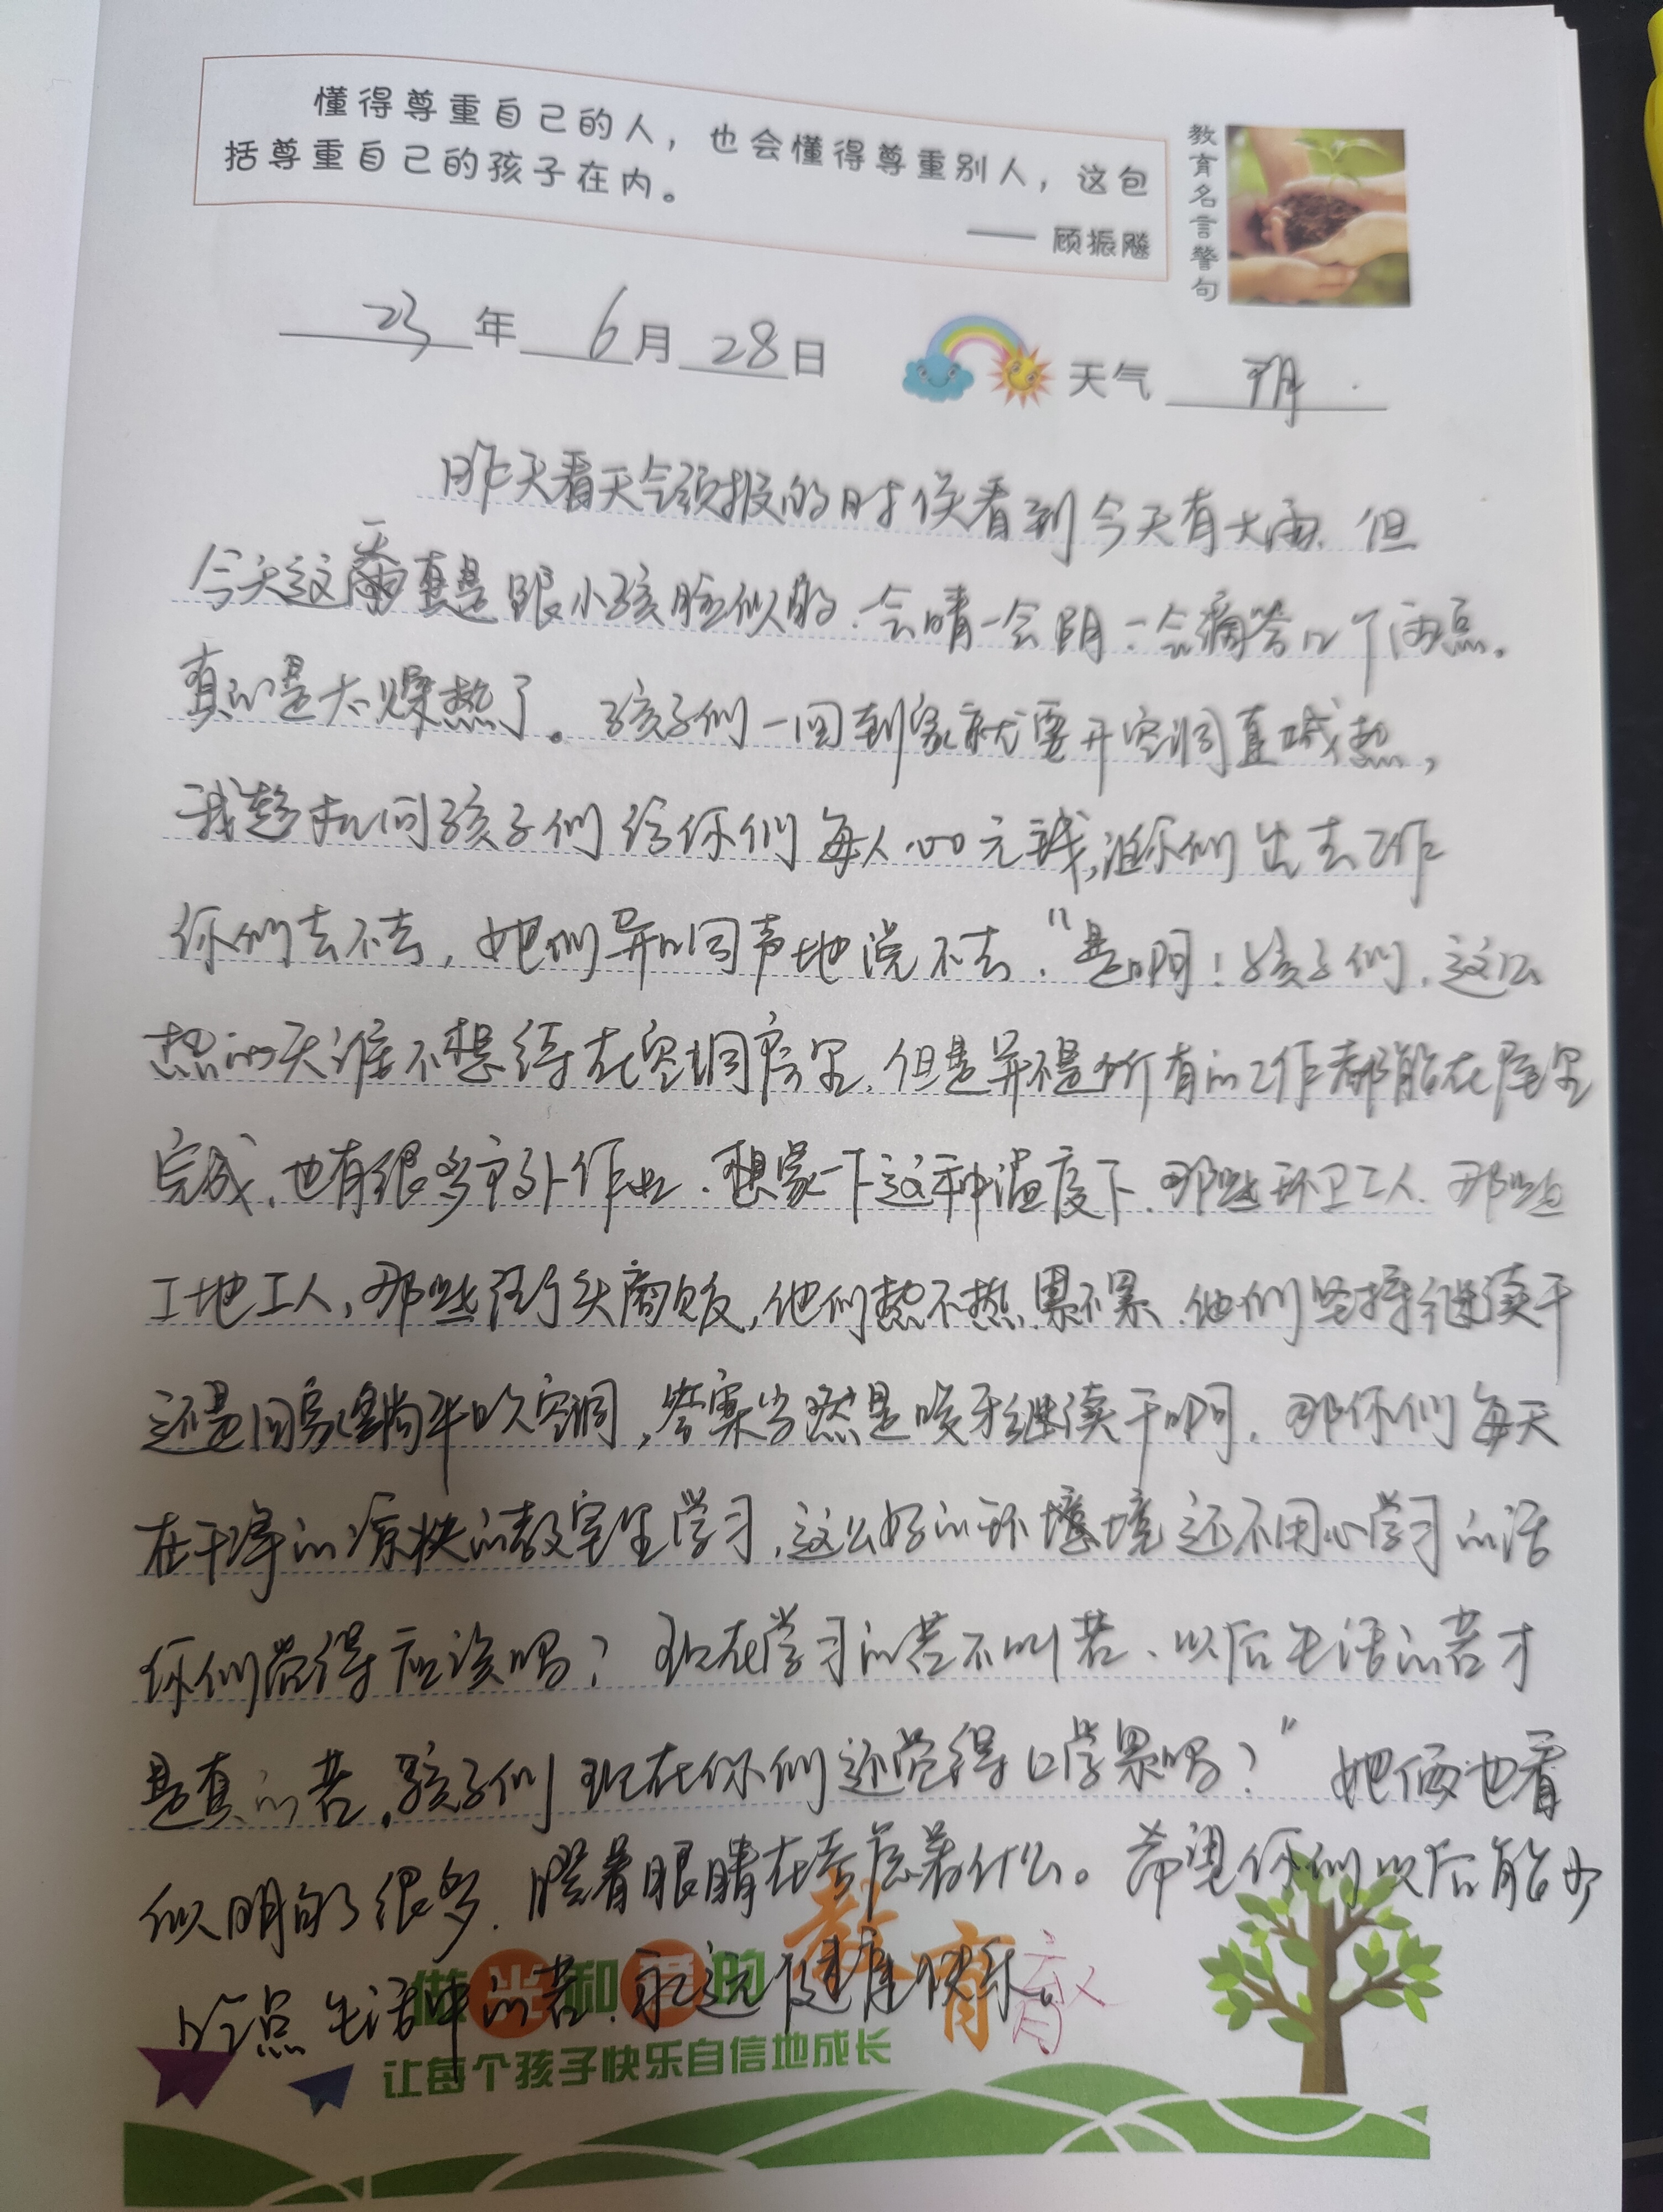 懂得尊重自己的人，也会懂得尊重别人，这包
括尊重自己的孩子在内。
—— 顾振飚
教育名言警句
23年6月28日
天气 阴
昨天看天气预报的时侯看到今天有大雨、但
今天这天真是跟小孩脸似的.一会晴一会阴一会滴答几个雨点。
真的是太燥热了。孩子们一回到家就要开空调直喊热，
我趁机问孩子们给你们每人100元钱,让你们出去工作
你们去不去，她们异口同声地说不去."是啊！孩子们,这么
热的天谁不想待在空调房里,但是并不是所有的工作都能在屋里
完成、也有很多室外作业.想象一下这种温度下.那些环卫工人.那些
工地工人,那些街头商贩,他们热不热,累不累.他们坚持继续干
还是回家躺平吹空调,答案当然是咬牙继续干啊.那你们每天
在干净的凉快的教室里学习,这么好的环境还不用心学习的话
你们觉得应该吗？现在学习的苦不叫苦、以后生活的苦才
是真的苦.孩子们现在你们还觉得学累吗？"她俩也看
似明白了很多.瞪着眼睛在考虑着什么。希望你们以后能少
吃点生活中的苦.永远健康快乐。
做光和爱的教育
让每个孩子快乐自信地成长